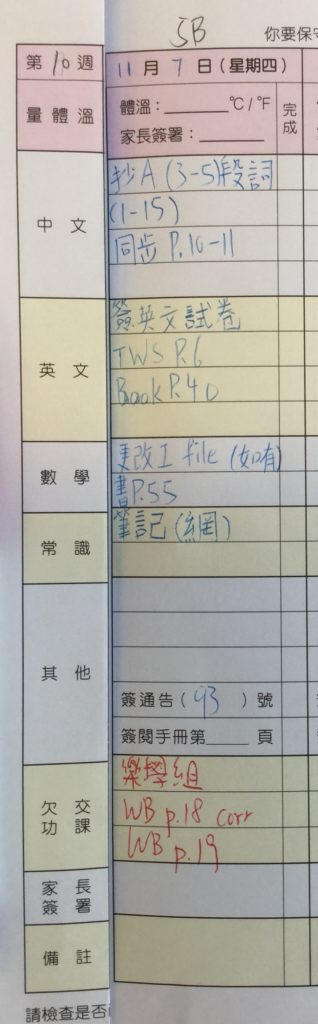 5B
你要保守
第10週
11月7日(星期四)
量體溫
體溫:______°C/°F
家長簽署:______
完成
中文
抄A(3-5)段詞
(1-15)
同步 P.10-11
英文
簽英文試卷
TWS P.6
Book P.40
數學
更改工 file (如有)
書P.55
常識
筆記(網)
其他
簽通告(93)號
簽閱手冊第____頁
欠交功課
樂學組
WB p.18 corr
WB p.19
家長簽署
備註
請檢查是否